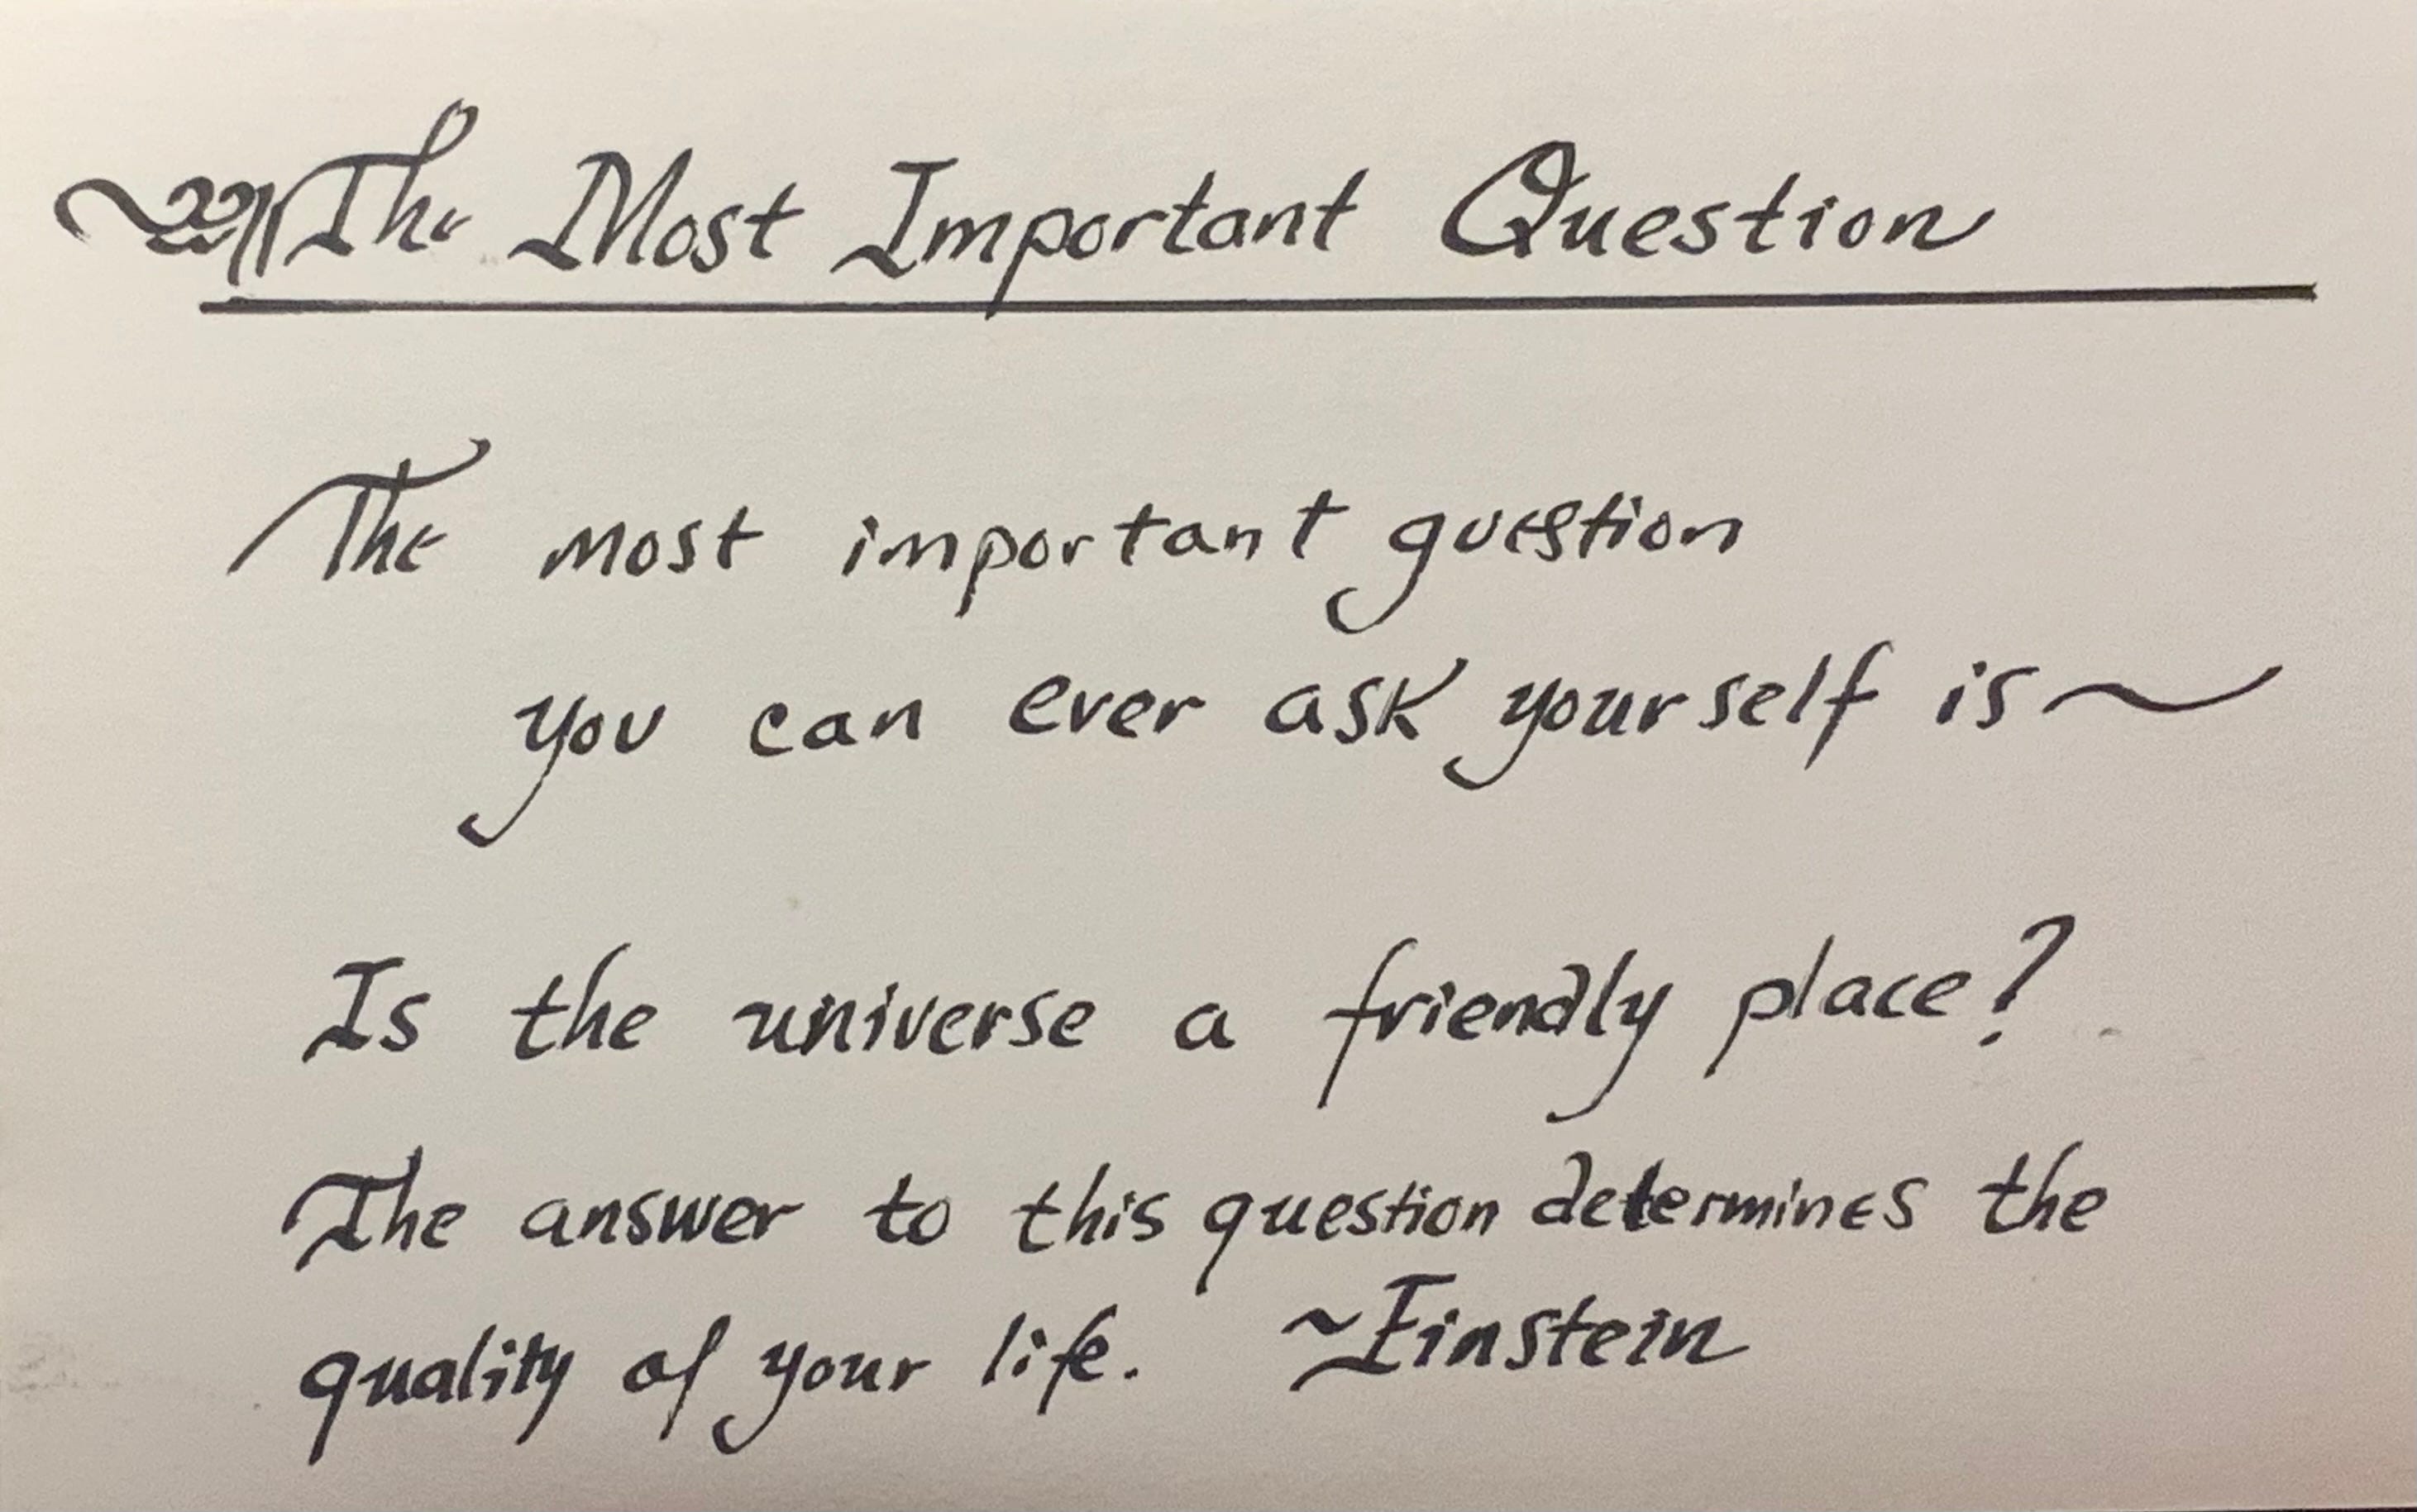 The Most Important Question
The most important question
you can ever ask yourself is~
Is the universe a friendly place?
The answer to this question determines the
quality of your life. ~Einstein